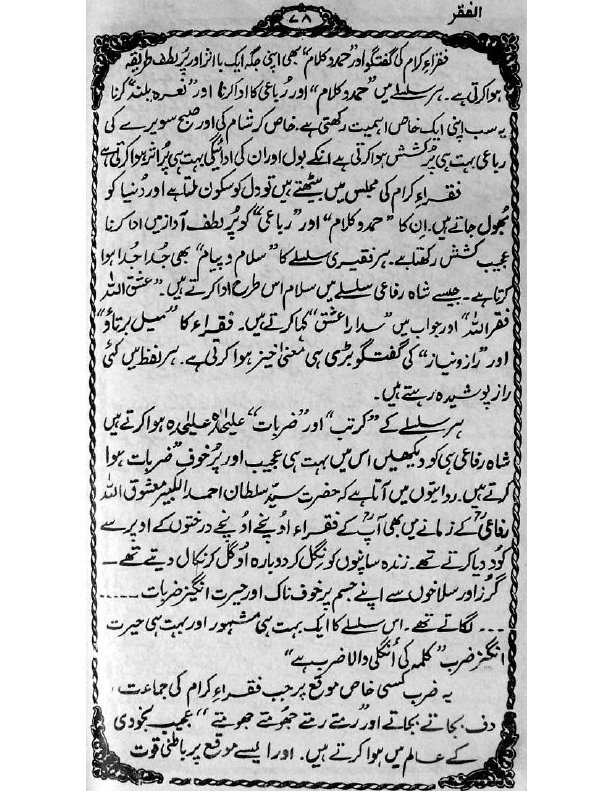 الفقر
۷۸
فقراءِ کرام کی گفتگو اور "حمد و کلام" بھی اپنی جگہ ایک با اثر اور پُر لطف طریقہ
ہوا کرتی ہے۔ ہر سلسلے میں "حمد و کلام" اور رُباعی کا ادا کرنا اور "نعرہ بلند" کرنا
یہ سب اپنی ایک خاص اہمیت رکھتی ہے۔ خاص کر شام کی اور صبح سویرے کی
رباعی بہت ہی پُر کشش ہوا کرتی ہے انکے بول اور ان کی ادائیگی بہت ہی پُر اثر ہوا کرتی ہے
فقراءِ کرام کی مجلس میں بیٹھتے ہیں تو دل کو سکون ملتا ہے اور دُنیا کو
بھول جاتے ہیں۔ اِن کا "حمد و کلام" اور "رباعی" کو پُر لطف آواز میں ادا کرنا
عجیب کشش رکھتا ہے۔ ہر فقیری سلسلے کا "سلام و پیام" بھی جُدا جُدا ہوا
کرتا ہے۔ جیسے شاہ رفاعی سلسلے میں سلام اس طرح ادا کرتے ہیں۔ "عشق اللہ
فقر اللہ" اور جواب میں "سدا را عشق" کہا کرتے ہیں۔ فقراء کا "میل برتاؤ"
اور "راز و نیاز" کی گفتگو بڑی ہی معنیٰ خیز ہوا کرتی ہے۔ ہر لفظ میں کئی
راز پوشیدہ رہتے ہیں۔
ہر سلسلے کے "کرتب" اور "ضربات" علیحدہ علیحدہ ہوا کرتے ہیں
شاہ رفاعی ہی کو دیکھیں اس میں بہت ہی عجیب اور پُر خوف "ضربات ہوا
کرتے ہیں۔ روایتوں میں آتا ہے کہ حضرت سیّد سلطان احمد الکبیر معشوق اللہ
رفاعیؒ کے زمانے میں بھی آپؒ کے فقراء اونچے اونچے درختوں کے اوپر سے
کود دیا کرتے تھے۔ زندہ سانپوں کو نگل کر دوبارہ اوگل کر نکال دیتے تھے۔
گُرز اور سلاخوں سے اپنے جسم پر خوف ناک اور حیرت انگیز ضربات .....
... لگاتے تھے۔ اس سلسلے کا ایک بہت ہی مشہور اور بہت ہی حیرت
انگیز ضرب "کلمہ کی اُنگلی والا ضرب ہے"
یہ ضرب کسی خاص موقع پر جب فقراءِ کرام کی جماعت
دف بجاتے بجاتے اور "رمتے رمتے جھُومتے جھومتے" عجیب بیخودی
کے عالم میں ہوا کرتے ہیں۔ اور ایسے موقع پر باطنی قوت